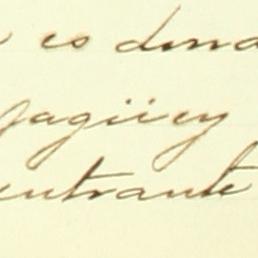 es dond
Jagüey
entrante